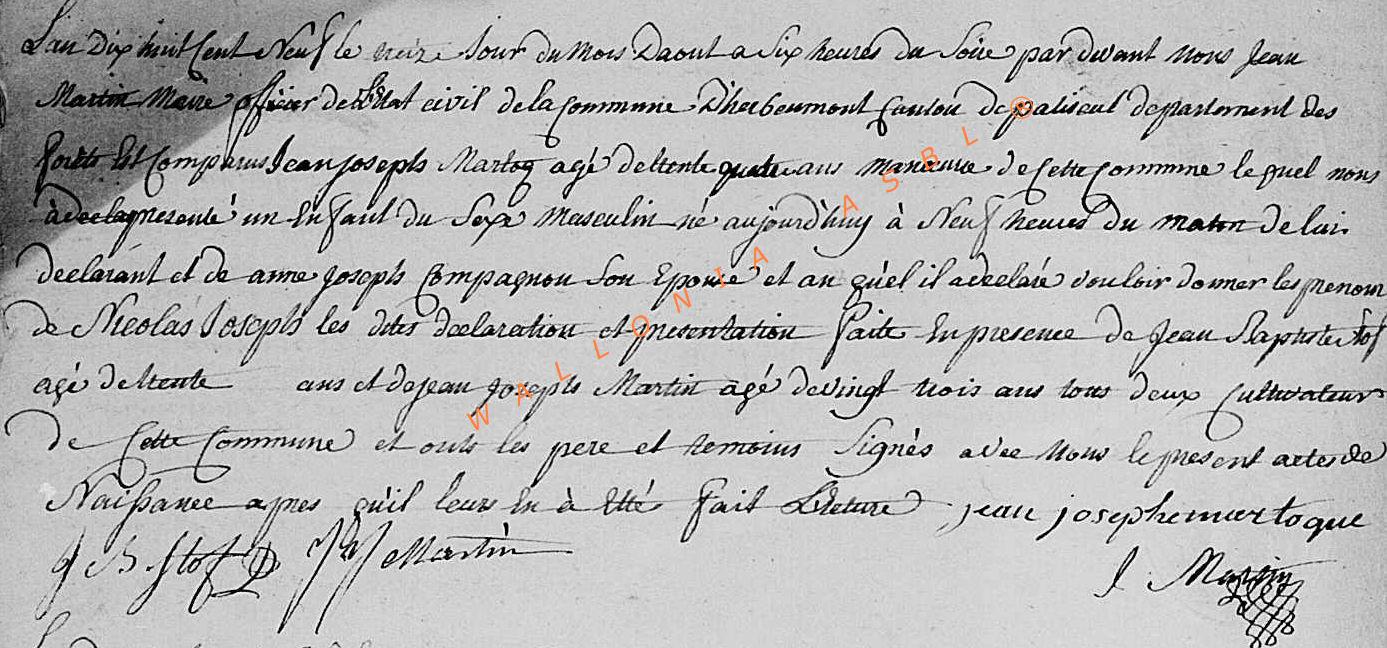 L'an Dix huit Cent Neuf le treize Jour du Mois Daout a Six heures du Soire par devant nous Jean
Martin Maire officier de l'Etat civil de la Commune D'herbeumont Canton de paliseul departement des
forêts Est Comparus Jean Joseph Martoq agé de trente quatre ans manoeuvre de Cette Commune le quel nous
à presenté un Enfant du Sexe Masculin né aujourd'huy à Neuf heures du matin de lui
declarant et de anne Joseph Compagnon Son Epouse et au quel il a declaré vouloir donner les prenom
de Nicolas Joseph les dites declaration et presentation faite En presence de Jean Baptiste Stof
agé de trente ans et de Jean Joseph Martin agé de vingt trois ans tous deux Cultivateur
de Cette Commune et onts les pere et temoins Signés avec Nous le present actes de
Naissance apres qu'il leurs En à Etté fait Lecture jean josephe martoque
J B Stof J J Martin
J Martin
WALLONIA ASBL ®